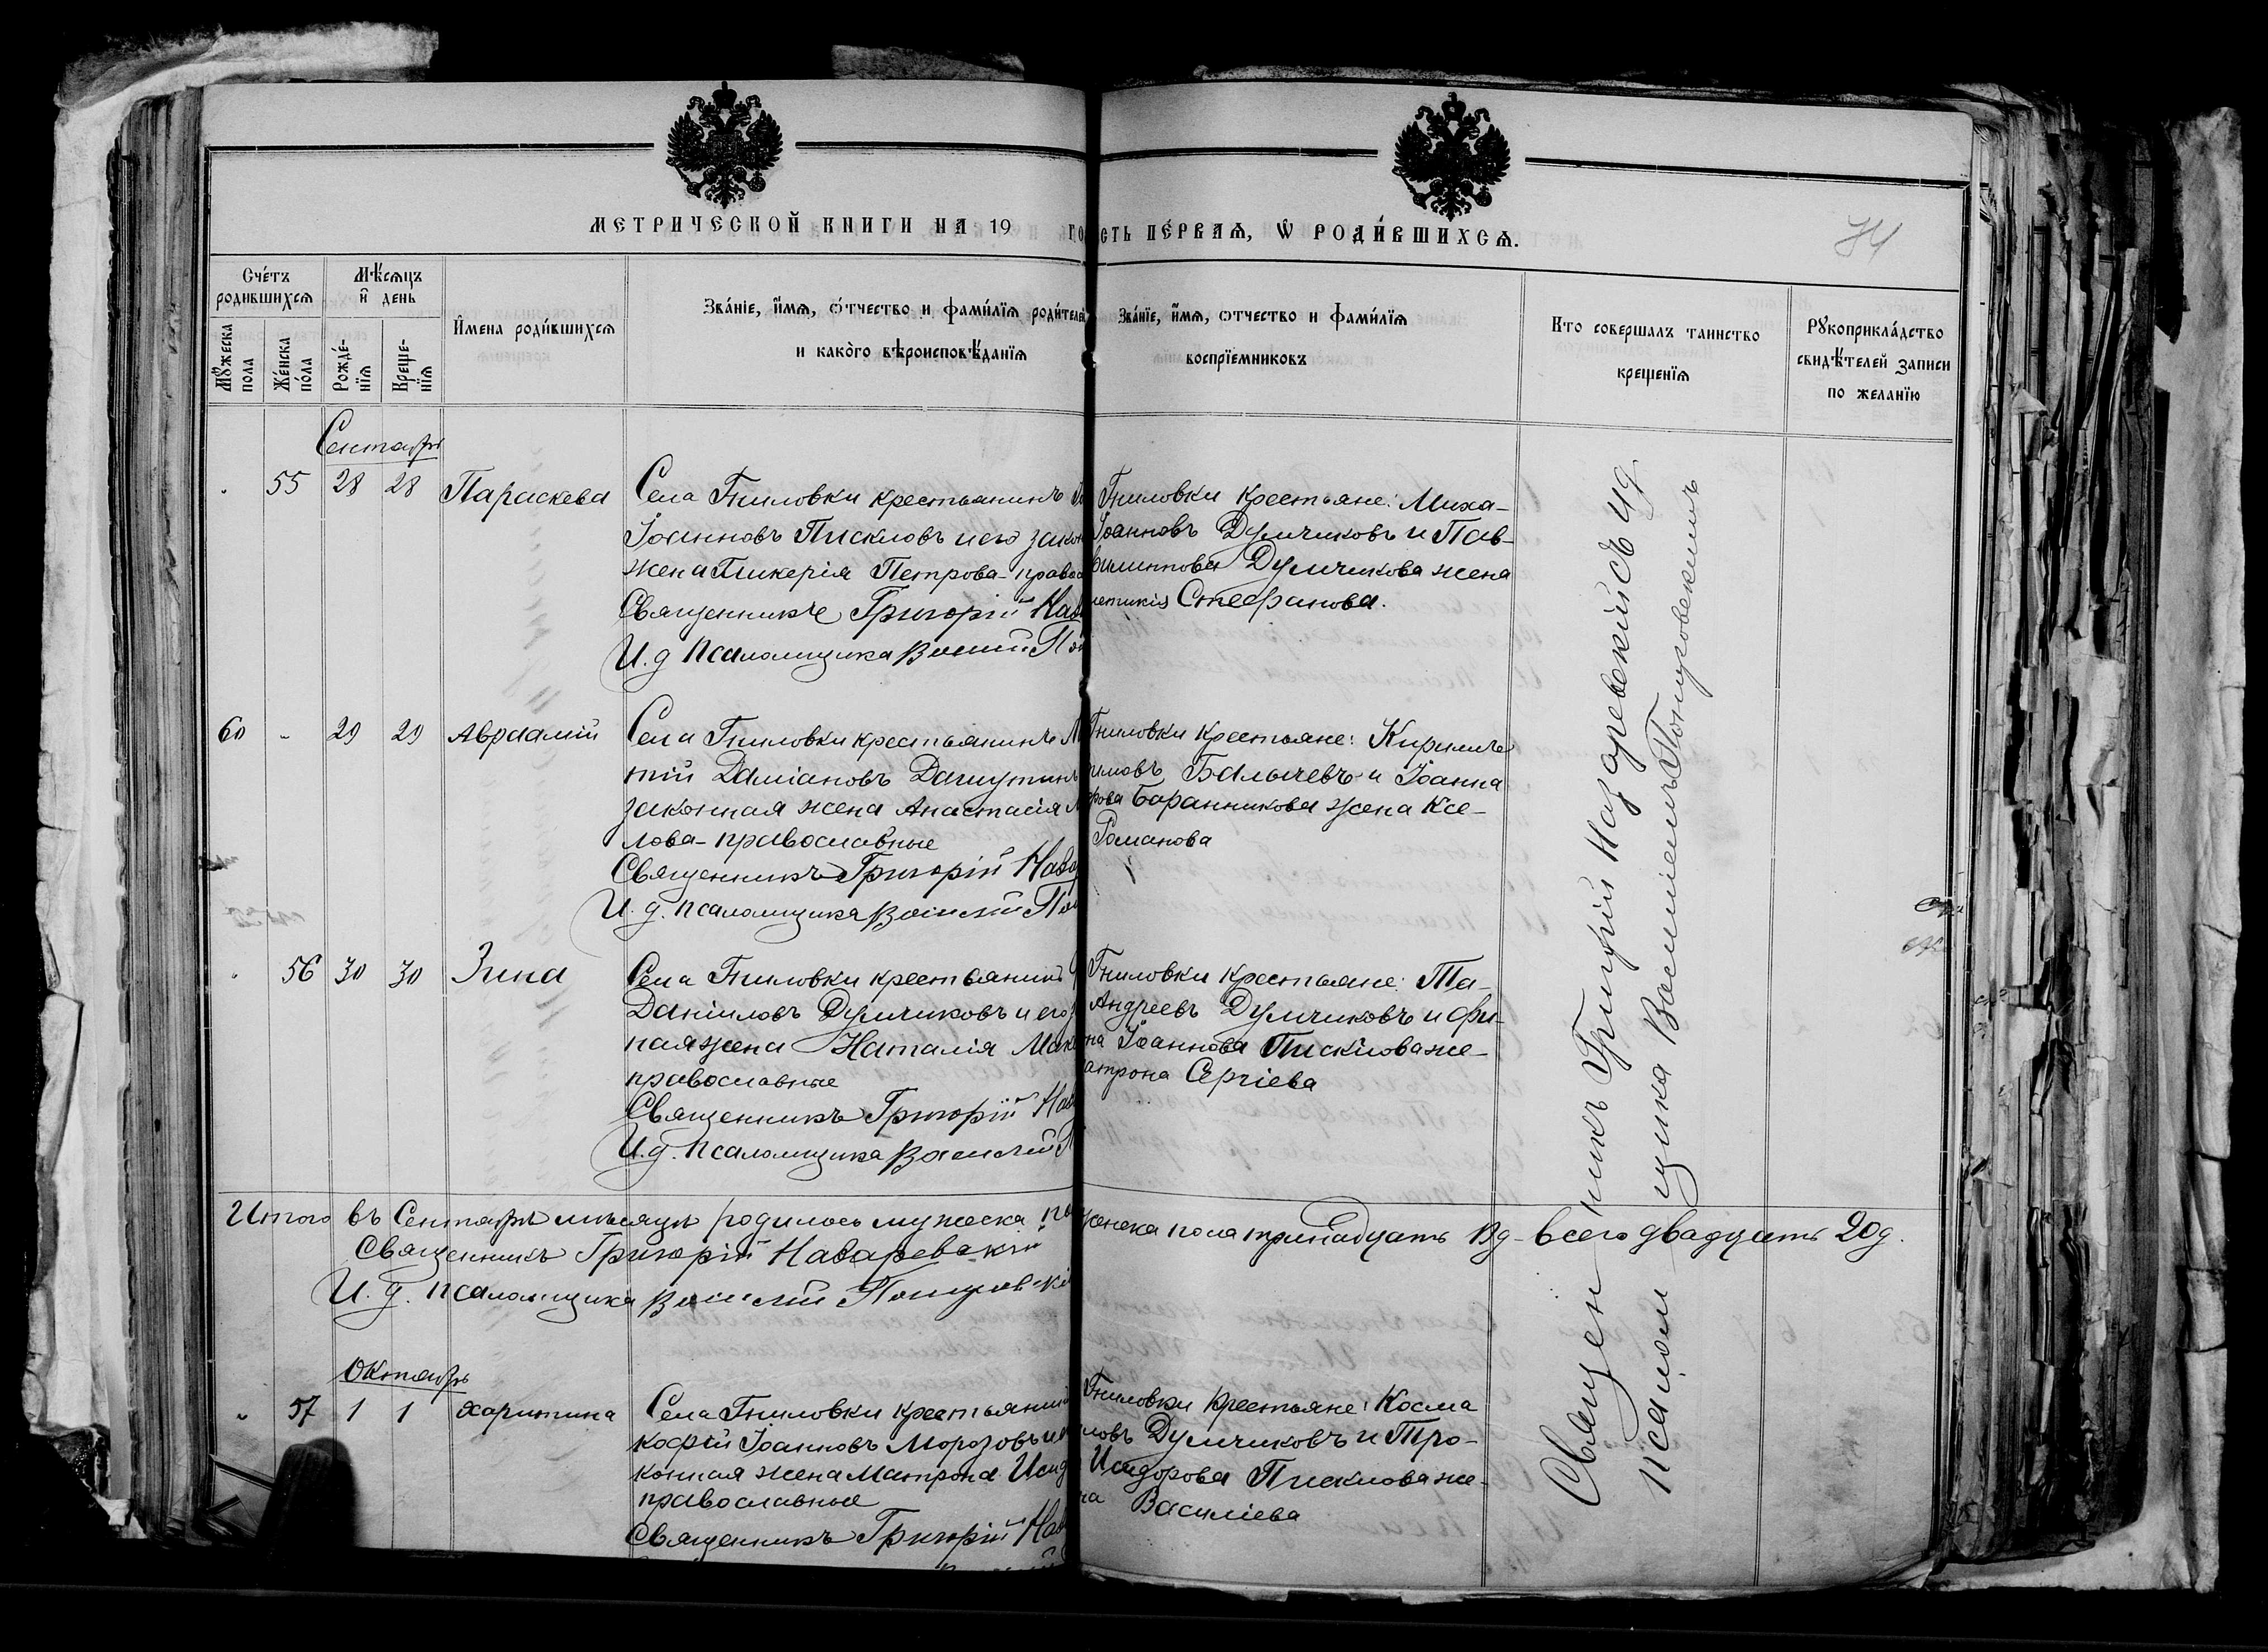 МЕТРИЧЕСКОЙ КНИГИ НА 19
СТЬ ПЕРВАЯ, Ѡ РОДИВШИХСЯ.
74
Счетъ родившихся
Мужеска пола
Женска пола
Мѣсяцъ и день
Рожденія
Крещенія
Имена родившихся
Званіе, имя, отчество и фамилія родителей
и какого вѣроисповѣданія
Званіе, имя, отчество и фамилія
воспріемниковъ
Кто совершалъ таинство
крещенія
Рукоприкладство
свидѣтелей записи
по желанію
Сентябрь
55 28 28 Параскева
Села Гниловки крестьянинъ
Іоанновъ Пискловъ и его закон
жена Гликерія Петрова - правос
Священникъ Григорій Наз
И. д. псаломщика Василій По
Гниловки крестьяне: Миха-
Іоанновъ Думчиковъ и Пав-
Думчикова жена
Стефанова.
60 - 29 29 Авраамій
Села Гниловки крестьянинъ
тій Даміановъ Дашутинъ
законная жена Анастасія
лова - православные
Священникъ Григорій Наза
И. д. псаломщика Василій По
Гниловки крестьяне: Кириллъ
имовъ Балычевъ и Іоанна
Баранникова жена Ксе-
Романова
56 30 30 Зина
Села Гниловки крестьянинъ
Даніиловъ Думчиковъ и его
ная жена Наталія Мак
православные
Священникъ Григорій Наз
И. д. псаломщика Василій П
Гниловки крестьяне: Та-
Андреевъ Думчиковъ и фи-
на Іоаннова Писклова же-
атрона Сергіева
Итого въ Сентябрѣ мѣсяцѣ родилось мужеска по
женска пола тринадцать 13 д - всего двадцать 20 д.
Священникъ Григорій Назаревскій
И. д. псаломщика Василій Понуровскій
Октябрь
57 1 1 Харитина
Села Гниловки крестьянинъ
кофій Іоанновъ Морозовъ и е
конная жена Матрона Исид
православные
Священникъ Григорій Наз
Гниловки крестьяне: Косма
ловъ Думчиковъ и Тро-
Исидорова Писклова же-
на Василіева
Священникъ Григорій Назаревскій съ и д.
псаломщика Василіемъ Понуровскимъ